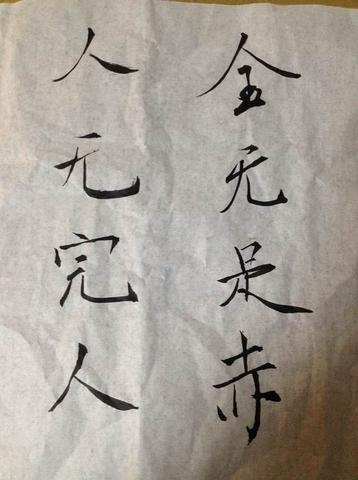 金无足赤
人无完人